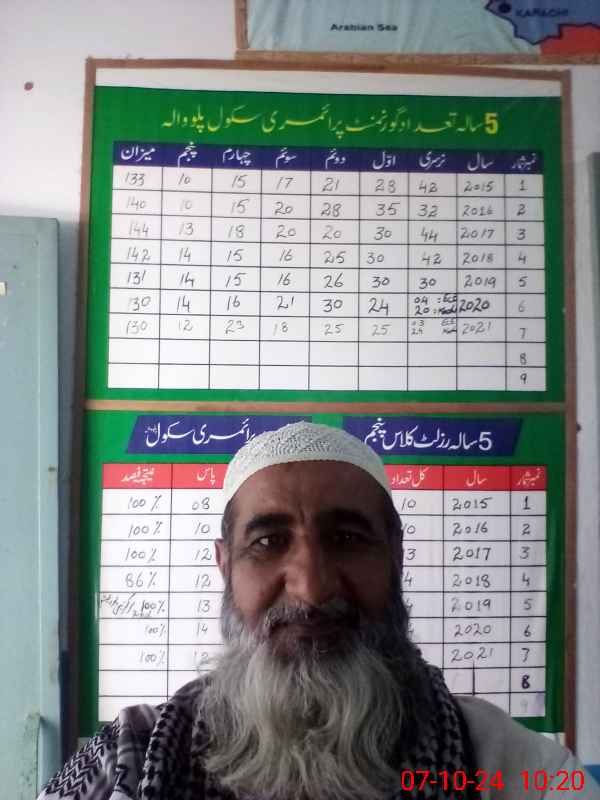 KARACHI
Arabian Sea
5 سالہ تعداد گورنمنٹ پرائمری سکول پلووالہ
نمبر شمار سال نرسری اوّل دوئم سوئم چہارم پنجم میزان
1 2015 42 23 21 17 15 10 133
2 2016 32 35 28 20 15 10 140
3 2017 44 30 20 20 18 13 144
4 2018 42 30 25 16 15 14 142
5 2019 30 30 26 16 15 14 131
6 2020 04 : ECE 20 : Kachi 24 30 21 16 14 130
7 2021 03 ECE 24 Kachi 25 25 18 23 12 130
8
9
5 سالہ رزلٹ کلاس پنجم پرائمری سکول
نمبر شمار سال کل تعداد پاس نتیجہ فیصد
1 2015 10 08 100%
2 2016 10 10 100%
3 2017 13 12 100%
4 2018 4 12 86%
5 2019 13 100%
6 2020 14 100%
7 2021 12 100%
8
9
07-10-24 10:20